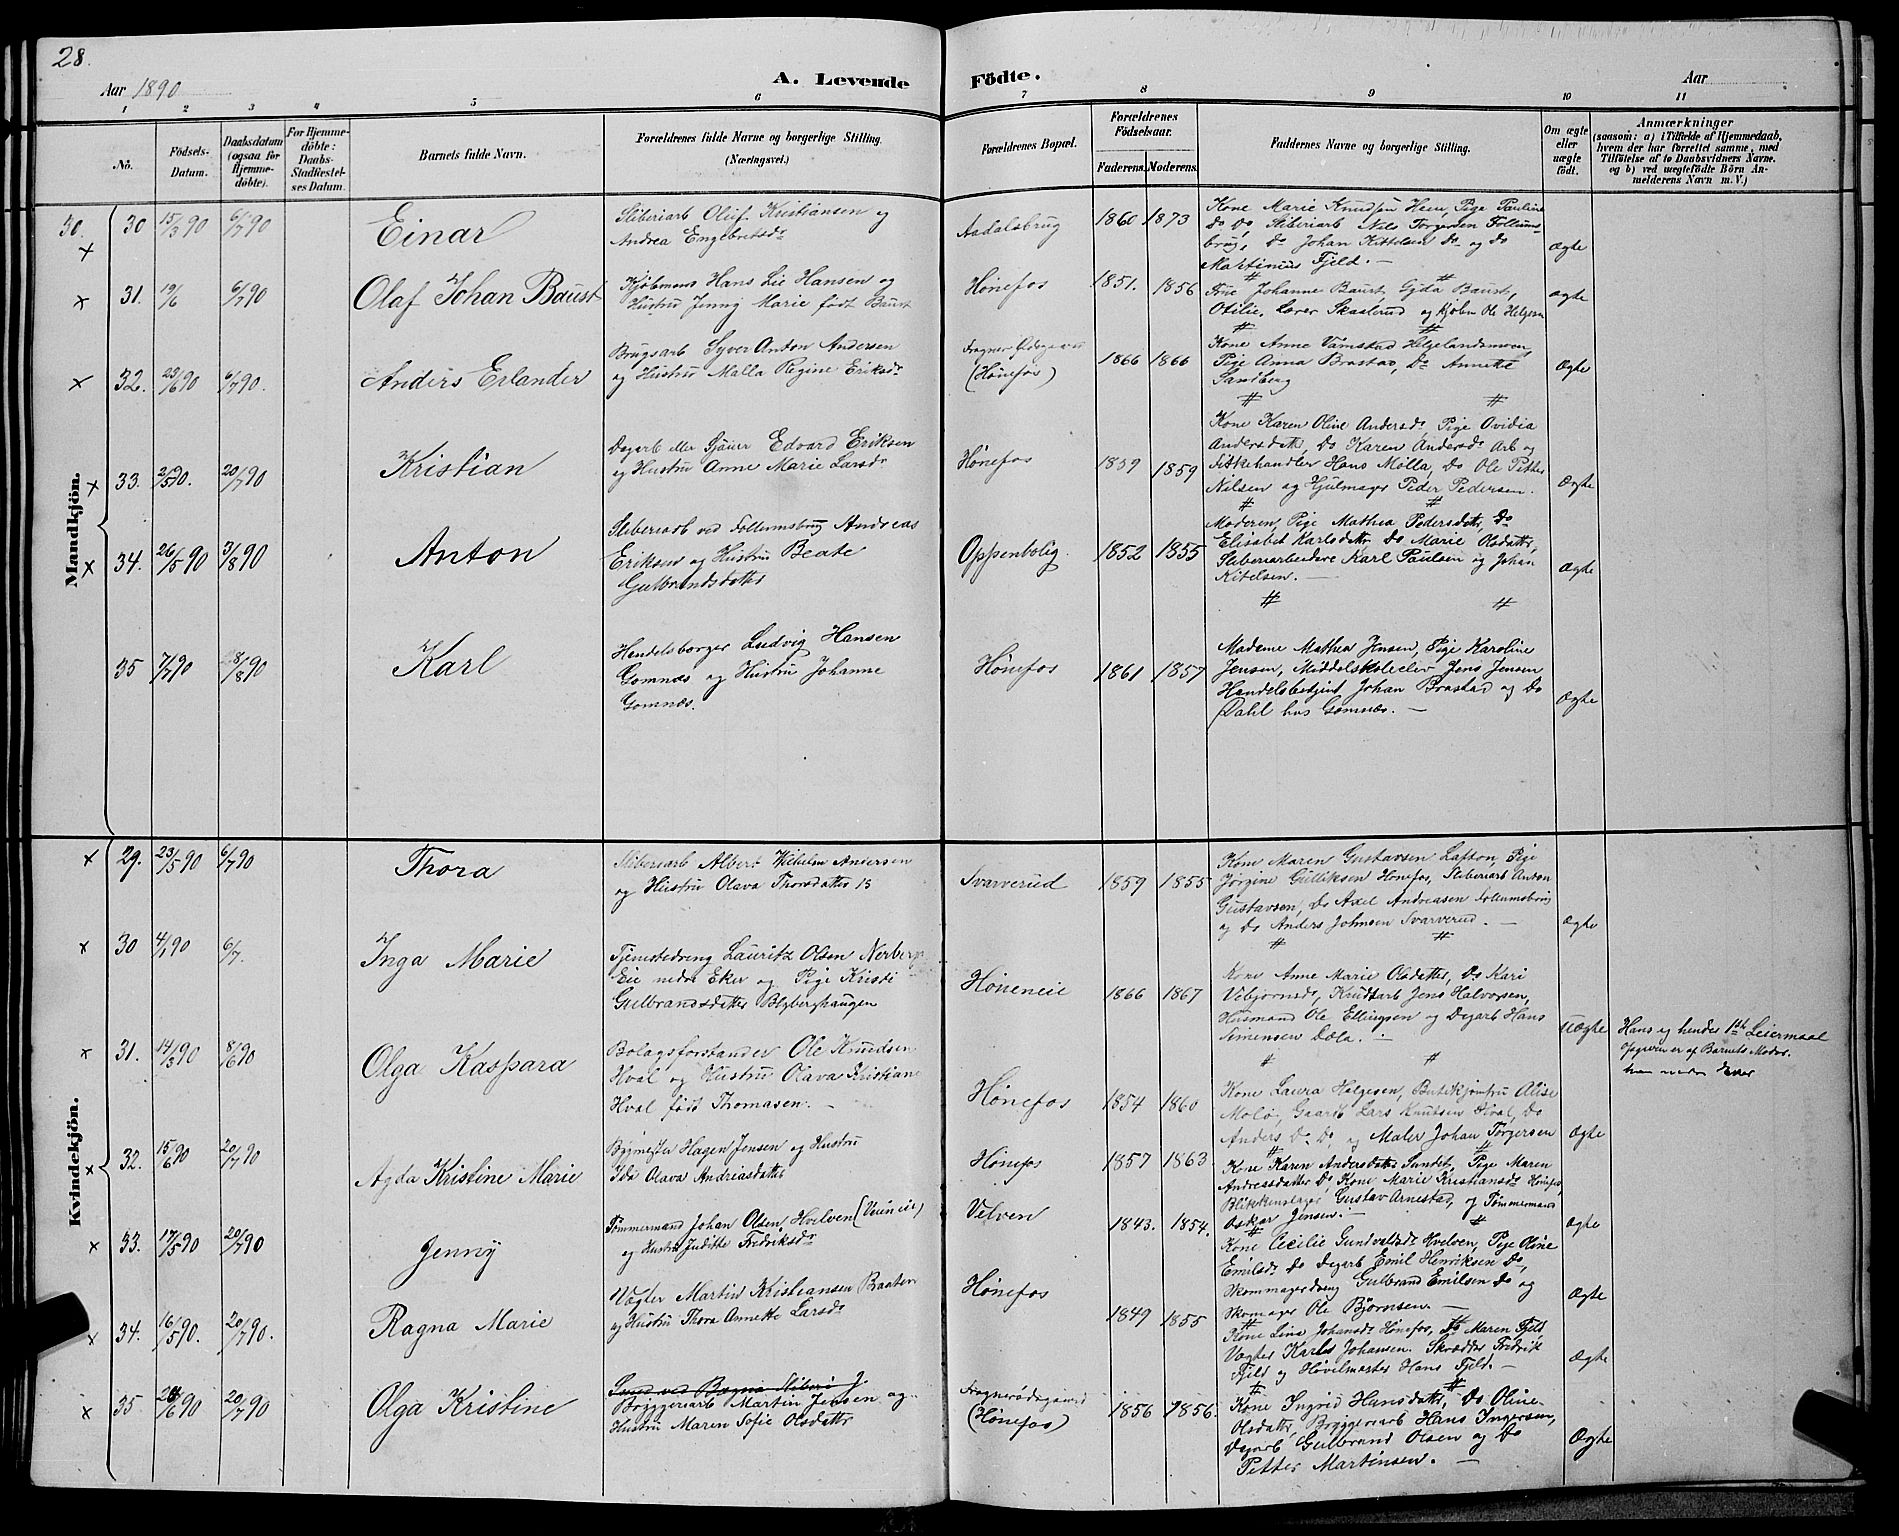 28.
Aar 1890
A. Levende Födte.
Aar
1 2 3 4 5 6 7 8 9 10 11
No. Födsels-Datum. Daabsdatum (ogsaa for Hjemmedöbte). For Hjemmedöbte: Daabs-Stadfæstelses Datum. Barnets fulde Navn. Forældrenes fulde Navne og borgerlige Stilling. (Næringsvei.) Forældrenes Bopæl. Forældrenes Födselsaar. Faderens. Moderens. Faddernes Navne og borgerlige Stilling. Om ægte eller uægte födt. Anmærkninger (saasom: a) i Tilfælde af Hjemmedaab, hvem der har forrettet samme, med Tilföielse af to Daabsvidners Navne, og b) ved uægtefödte Börn Anmelderens Navn m. V.)
Mandkjön.
30. 30 15/3 90 6/7 90 Einar
Sliberiarb Oluf Kristiansen og
Andrea Engebretsdr
Aadalsbrug 1860 1873
Kone Marie Knudsen Heen, Pige Pauline
Do Do, Sliberiarb Nils Torgersen Follums-
brug, Do Johan Kittelsen Do og Do
Martinius Fjeld. —
ægte
31. 19/6 6/7 90 Olaf Johan Baust
Kjöbmand Hans Lie Hansen og
Hustru Jenny Marie født Baust
Hönefos 1851. 1856
Frue Johanne Baust, Gyda Baust,
Otilie, Lærer Skaalerud og Kjöbm Ole Helgesen
ægte
32. 23/6 90 6/7 90. Anders Erlander
Brugsarb Syver Anton Andersen
og Hustru Malla Regine Eriksdr
(Hönefos) 1866 1866
Kone Anne Vamstad Helgelandsmoen,
Pige Anna Brastad, Do Annette
Sandberg
Ægte
33. 2/5 90. 20/7 90 Kristian
Dagarb eller Sjauer Edvard Eriksen
og Hustru Anne Marie Larsdr
Hönefos 1859 1859
Kone Karen Oline Andersdr Pige Ovidia
Andersdatter, Do Karen Andersdr Arb og
Fiskehandler Hans Molla, Do Ole Petter
Nilsen og Hjulmager Peder Pedersen.
Ægte
34. 26/5 90 3/8 90 Anton
Sliberiarb ved Follumsbrug Andreas
Eriksen og Hustru Beate
Gulbrandsdatter
Oppenbolig. 1852 1855
Moderen, Pige Mathea Pedersdatter, Do
Elisabet Karlsdatter Do Marie Olsdatter,
Sliberiarbeidere Karl Paulsen og Johan
Kitelsen. —
Ægte
35 7/7 90 8/8 90 Karl
Handelsborger Ludvig Hansen
Gomnæs og Hustru Johanne
Gomnæs.
Hönefos 1861 1857
Madame Mathea Jensen, Pige Karoline
Jensen, Middelskoleelev Jens Jensen
Handelsbetjent Johan Brastad og Do
Dahl hos Gomnæs. —
Ægte
Kvindekjön.
29. 23/5 90 6/7 90 Thora
Sliberiarb Albert Wilhelm Andersen
og Hustru Olava Thorsdatter
Svarverud 1859 1855
Kone Maren Gustavsen Lafton, Pige
Jörgine Gulliksen Hönefos, Sliberiarb Anton
Gustavsen, Do Axel Andreasen Follumsbrug
og Do Anders Johnsen Svarverud. —
Ægte
30 4/1 90 6/7. Inga Marie
Tjenestedreng Lauritz Olsen Nerberg
Eie nedre Eker og Pige Kristi
Gulbrandsdatter Blyberghaugen
Höneneie 1866 1867
Kone Anne Marie Olsdatter, Do Kari
Vebjornsdr, Krudtarb Jens Halvorsen,
Husmand Ole Ellingsen og Dagarb Hans
Simensen Dæla. —
uægte
Hans og hendes 1ste Leiermaal
Opgiven er af Barnets Moder.
31. 14/3 90 8/6 90 Olga Kaspara
Bolagsforstander Ole Knudsen
Hval og Hustru Olava Kristiane
Hval født Thomasen. —
Hönefos 1854 1860
Kone Laura Helgesen, Butikjomfru Alise
Molö, Gaarb Lars Knutsen Hval, Do
Anders Do Do og Maler Johan Torgersen
Ægte
32. 15/6 90 20/7 90 Agda Kristine Marie
Bygmester Hagen Jensen og Hustru
Ida Olava Andreasdatter
Hönefos 1857 1863.
Kone Karen Andersdatter Sundet, Pige Maren
Andreasdatter Do, Kone Marie Kristiansdr Hönefos,
Blikkenslager Gustav Arnestad, og Tømmermand
Oskar Jensen. —
Ægte
33. 17/5 90 20/7 90 Jenny
Tømmermand Johan Olsen Hvelven (Veien eie)
og Hustru Juditte Fredriksdr
Velven 1843. 1854.
Kone Cecilie Gundvaldsdr Hvelven, Pige Oline
Emilsdr Do Dagarb Emil Henriksen Do,
Skommagerdreng Gulbrand Emilsen Do og
Skomager Ole Björnsen. —
Ægte
34. 16/5 90. 20/7 90. Ragna Marie
Vægter Martin Kristiansen Braaten
og Hustru Thora Annette Larsdr
Hönefos 1849 1855
Kone Lina Johansdr Hönefos, Do Maren Fjeld,
Vægter Karles Johansen. Skrædder Fredrik
Fjeld og Hövelmester Hans Fjeld. —
Ægte
35. 24/6 90 20/7 90 Olga Kristine
Bryggeriarb Martin Jensen og
Hustru Maren Sofie Olsdatter
(Hönefos) 1856 1856.
Kone Ingrid Hansdatter, Do Oline
Olsdatter, Bryggeriarb Hans Ingersen,
Dagarb Gulbrand Olsen og Do
Petter Martinsen. —
Ægte